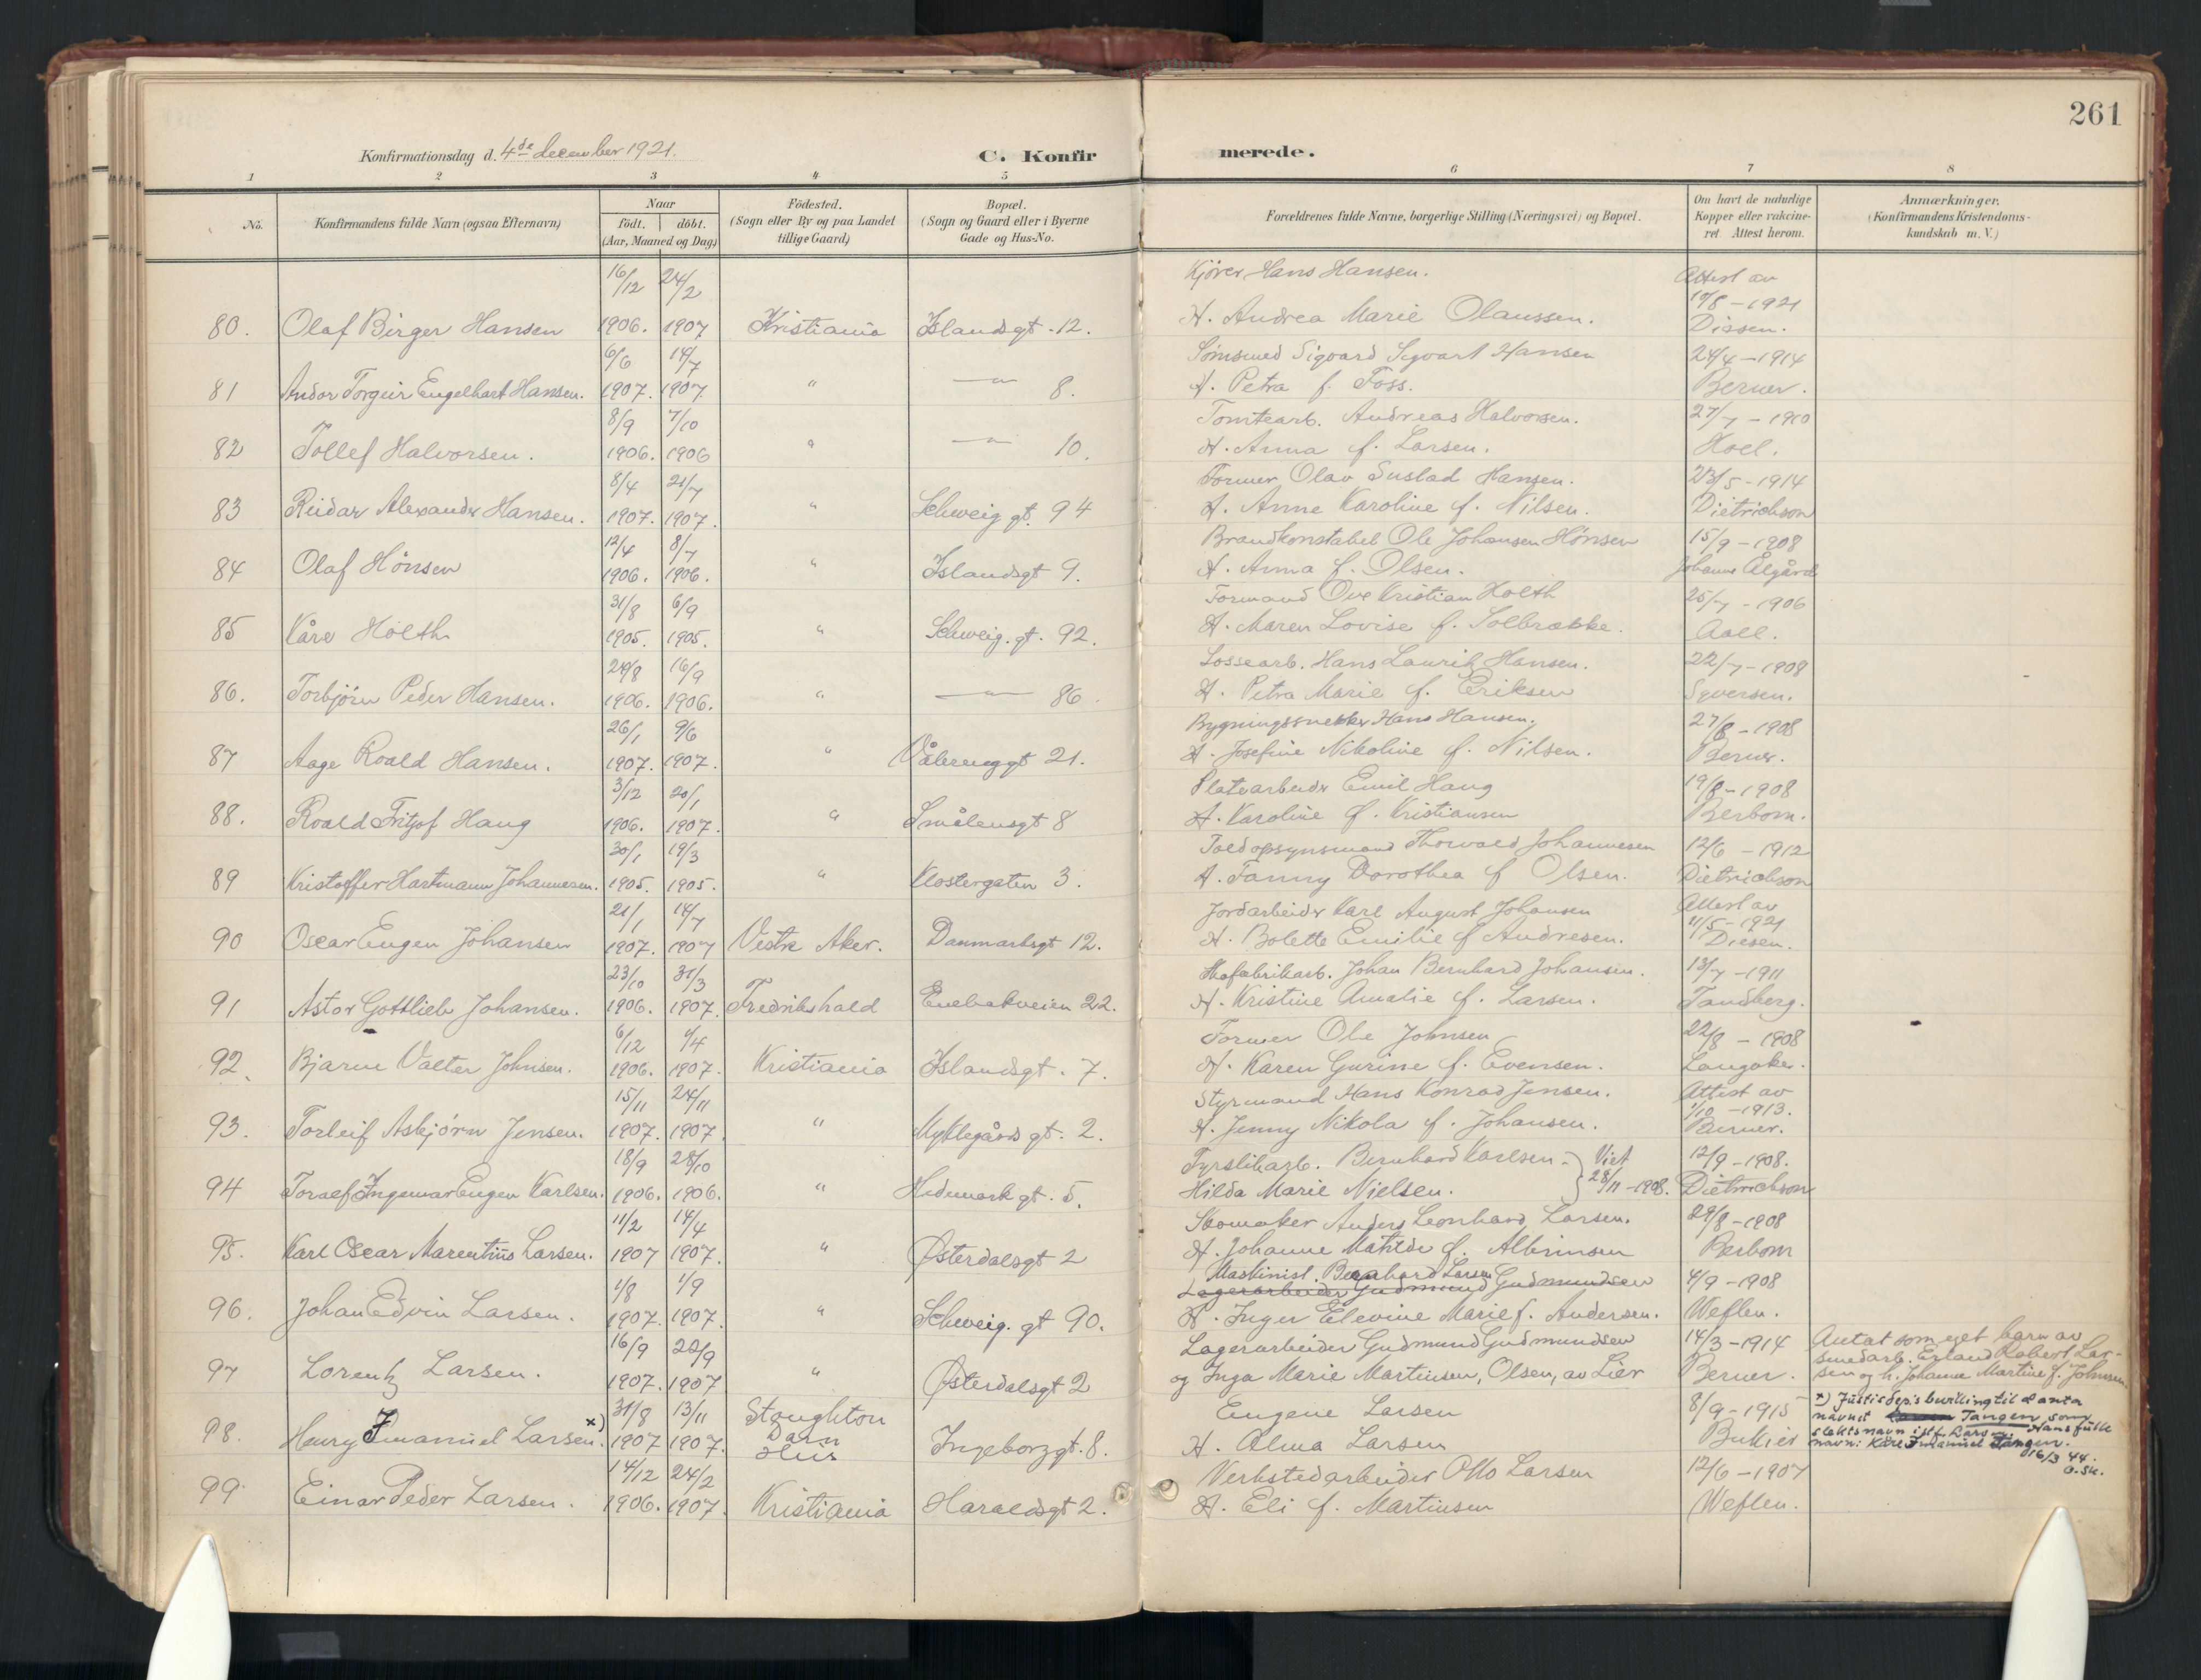 261
Konfirmationsdag d. 4de december 1921.
C. Konfirmerede.
1 2 3 4 5 6 7 8
No.
Konfirmandens fulde Navn (ogsaa Efternavn)
Naar
födt. döbt.
(Aar, Maaned og Dag)
Födested.
(Sogn eller By og paa Landet
tillige Gaard)
Bopæl.
(Sogn og Gaard eller i Byerne
Gade og Hus-No.
Forældrenes fulde Navne, borgerlige Stilling (Næringsvei) og Bopæl.
Om havt de naturlige
Kopper eller vakcine-
ret Attest herom.
Anmærkninger.
(Konfirmandens Kristendoms-
kundskab m. V.)
16/12 24/2 Kjører Hans Hansen. Attest av
80. Olaf Birger Hansen 1906. 1907 Kristiania Islandsgt. 12. H. Andrea Marie Olaussen. 19/8 - 1921 Dissen.
6/6 14/7 Sømsmed Sigvard Sigvart Hansen 24/4 - 1914
81 Andor Torgeir Engelhart Hansen. 1907. 1907 " —"— 8. H. Petra f. Foss. Berner.
8/9 7/10 Tomtearb. Andreas Halvorsen. 27/7 - 1910
82 Tollef Halvorsen. 1906. 1906 " —"— 10. H. Anna f. Larsen. Hoel.
8/4 21/7 Former Olav Sustad Hansen. 23/5 - 1914
83 Reidar Alexander Hansen. 1907. 1907. " Schweig gt. 94 H. Anne Karoline f. Nilsen. Dietrichson
12/4 8/7 Brandkonstabel Ole Johansen Hønsen 15/9 - 1908
84 Olaf Hønsen 1906. 1906. " Islandsgt 9. H. Anna f. Olsen. Johanne Ålgård
31/8 6/9 Formand Ove Kristian Holth 25/7 - 1906
85 Kåre Holth 1905. 1905. " Schweig. gt. 92. H. Maren Lovise f. Solbrække. Aall.
29/8 16/9 Lossearb. Hans Laurik Hansen. 22/7 - 1908
86. Torbjørn Peder Hansen. 1906. 1906. " —"— 86. H. Petra Marie f. Eriksen Syversen.
26/1 9/6 Bygningssnekker Hans Hansen. 27/8 - 1908
87 Aage Roald Hansen. 1907. 1907. " Vålerenggt 21. H. Josefine Nikoline f. Nilsen. Berner.
3/12 20/1 Platearbeider Emil Haug 19/8 - 1908
88. Roald Fritjof Haug 1906. 1907. " Smålensgt 8 H. Karoline f. Kristiansen Berbom.
30/1 19/3 Toldopsynsmand Thorvald Johannesen 12/6 - 1912
89 Kristoffer Hartmann Johannesen. 1905. 1905. " Klostergaten 3. H. Fanny Dorothea f Olsen. Dietrichson
21/1 14/7 Jordarbeider Karl August Johansen Attest av
90 Oscar Eugen Johansen 1907. 1907 Vestre Aker. Danmarksgt 12. H. Bolette Emilie f Andresen. 11/5 - 1921 Diesen.
23/10 31/3 Skofabrikarb. Johan Bernhard Johansen. 13/7 - 1911
91 Astor Gottlieb Johansen. 1906. 1907. Fredrikshald Enebakveien 22. H. Kristine Amalie f. Larsen. Tandberg.
6/12 1/4 Former Ole Johnsen 22/8 - 1908
92. Bjarne Valter Johnsen. 1906. 1907. Kristiania Islandsgt. 7. H. Karen Gurine f. Evensen. Langaker.
15/11 24/11 Styrmand Hans Konrad Jensen. Attest av
93. Torleif Asbjørn Jensen. 1907. 1907. " Myklegårds gt. 2. H. Jenny Nikola f. Johansen. 1/10 - 1913. Berner.
18/9 28/10 Fyrstikarb. Bernhard Karlsen. } Viet 12/9 - 1908.
94 Toralf Ingemar Eugen Karlsen. 1906. 1906. " Hedmark gt. 5. Hilda Marie Nielsen. 28/11 - 1908. Dietrichson
11/2 14/4 Skomaker Anders Leonhard Larsen. 29/8 - 1908
95. Karl Oscar Marentius Larsen. 1907 1907. " Østerdalsgt 2 H. Johanne Matilde f. Albrinsen Berbom
Maskinist. Bernhard Larsen
1/8 1/9 Lagerarbeider Gudmund Gudmundsen 4/9 - 1908
96. Johan Edvin Larsen. 1907. 1907. " Schweig. gt 90. H. Inger Elevine Marie f. Andersen. Weflen.
16/9 22/9 Lagerarbeider Gudmund Gudmundsen 14/3 - 1914 Antat som eget barn av
97 Lorentz Larsen. 1907. 1907 " Østerdalsgt 2 og Inga Marie Martinsen, Olsen, av Lier Berner. smedarb. Erland Robert Lar-
sen og h. Johanne Martine f. Johnsen.
31/8 13/11 Stoughton Eugene Larsen 8/9 - 1915 x) Justisdep's bevilling til å anta
98. Henry Imanuel Larsen x). 1907 1907. Darn Hus Ingeborggt. 8. H. Alma Larsen navnet Tangen som
slektsnavn istf. Larsen. Hans fulle
navn: Kåre Imanuel Tangen.
16/3 44.
O. Sk.
14/12 24/2 Verkstedarbeider Otto Larsen 12/6 - 1907
99. Einar Peder Larsen. 1906. 1907. Kristiania Haraldsgt 2. H. Eli f. Martinsen Weflen.